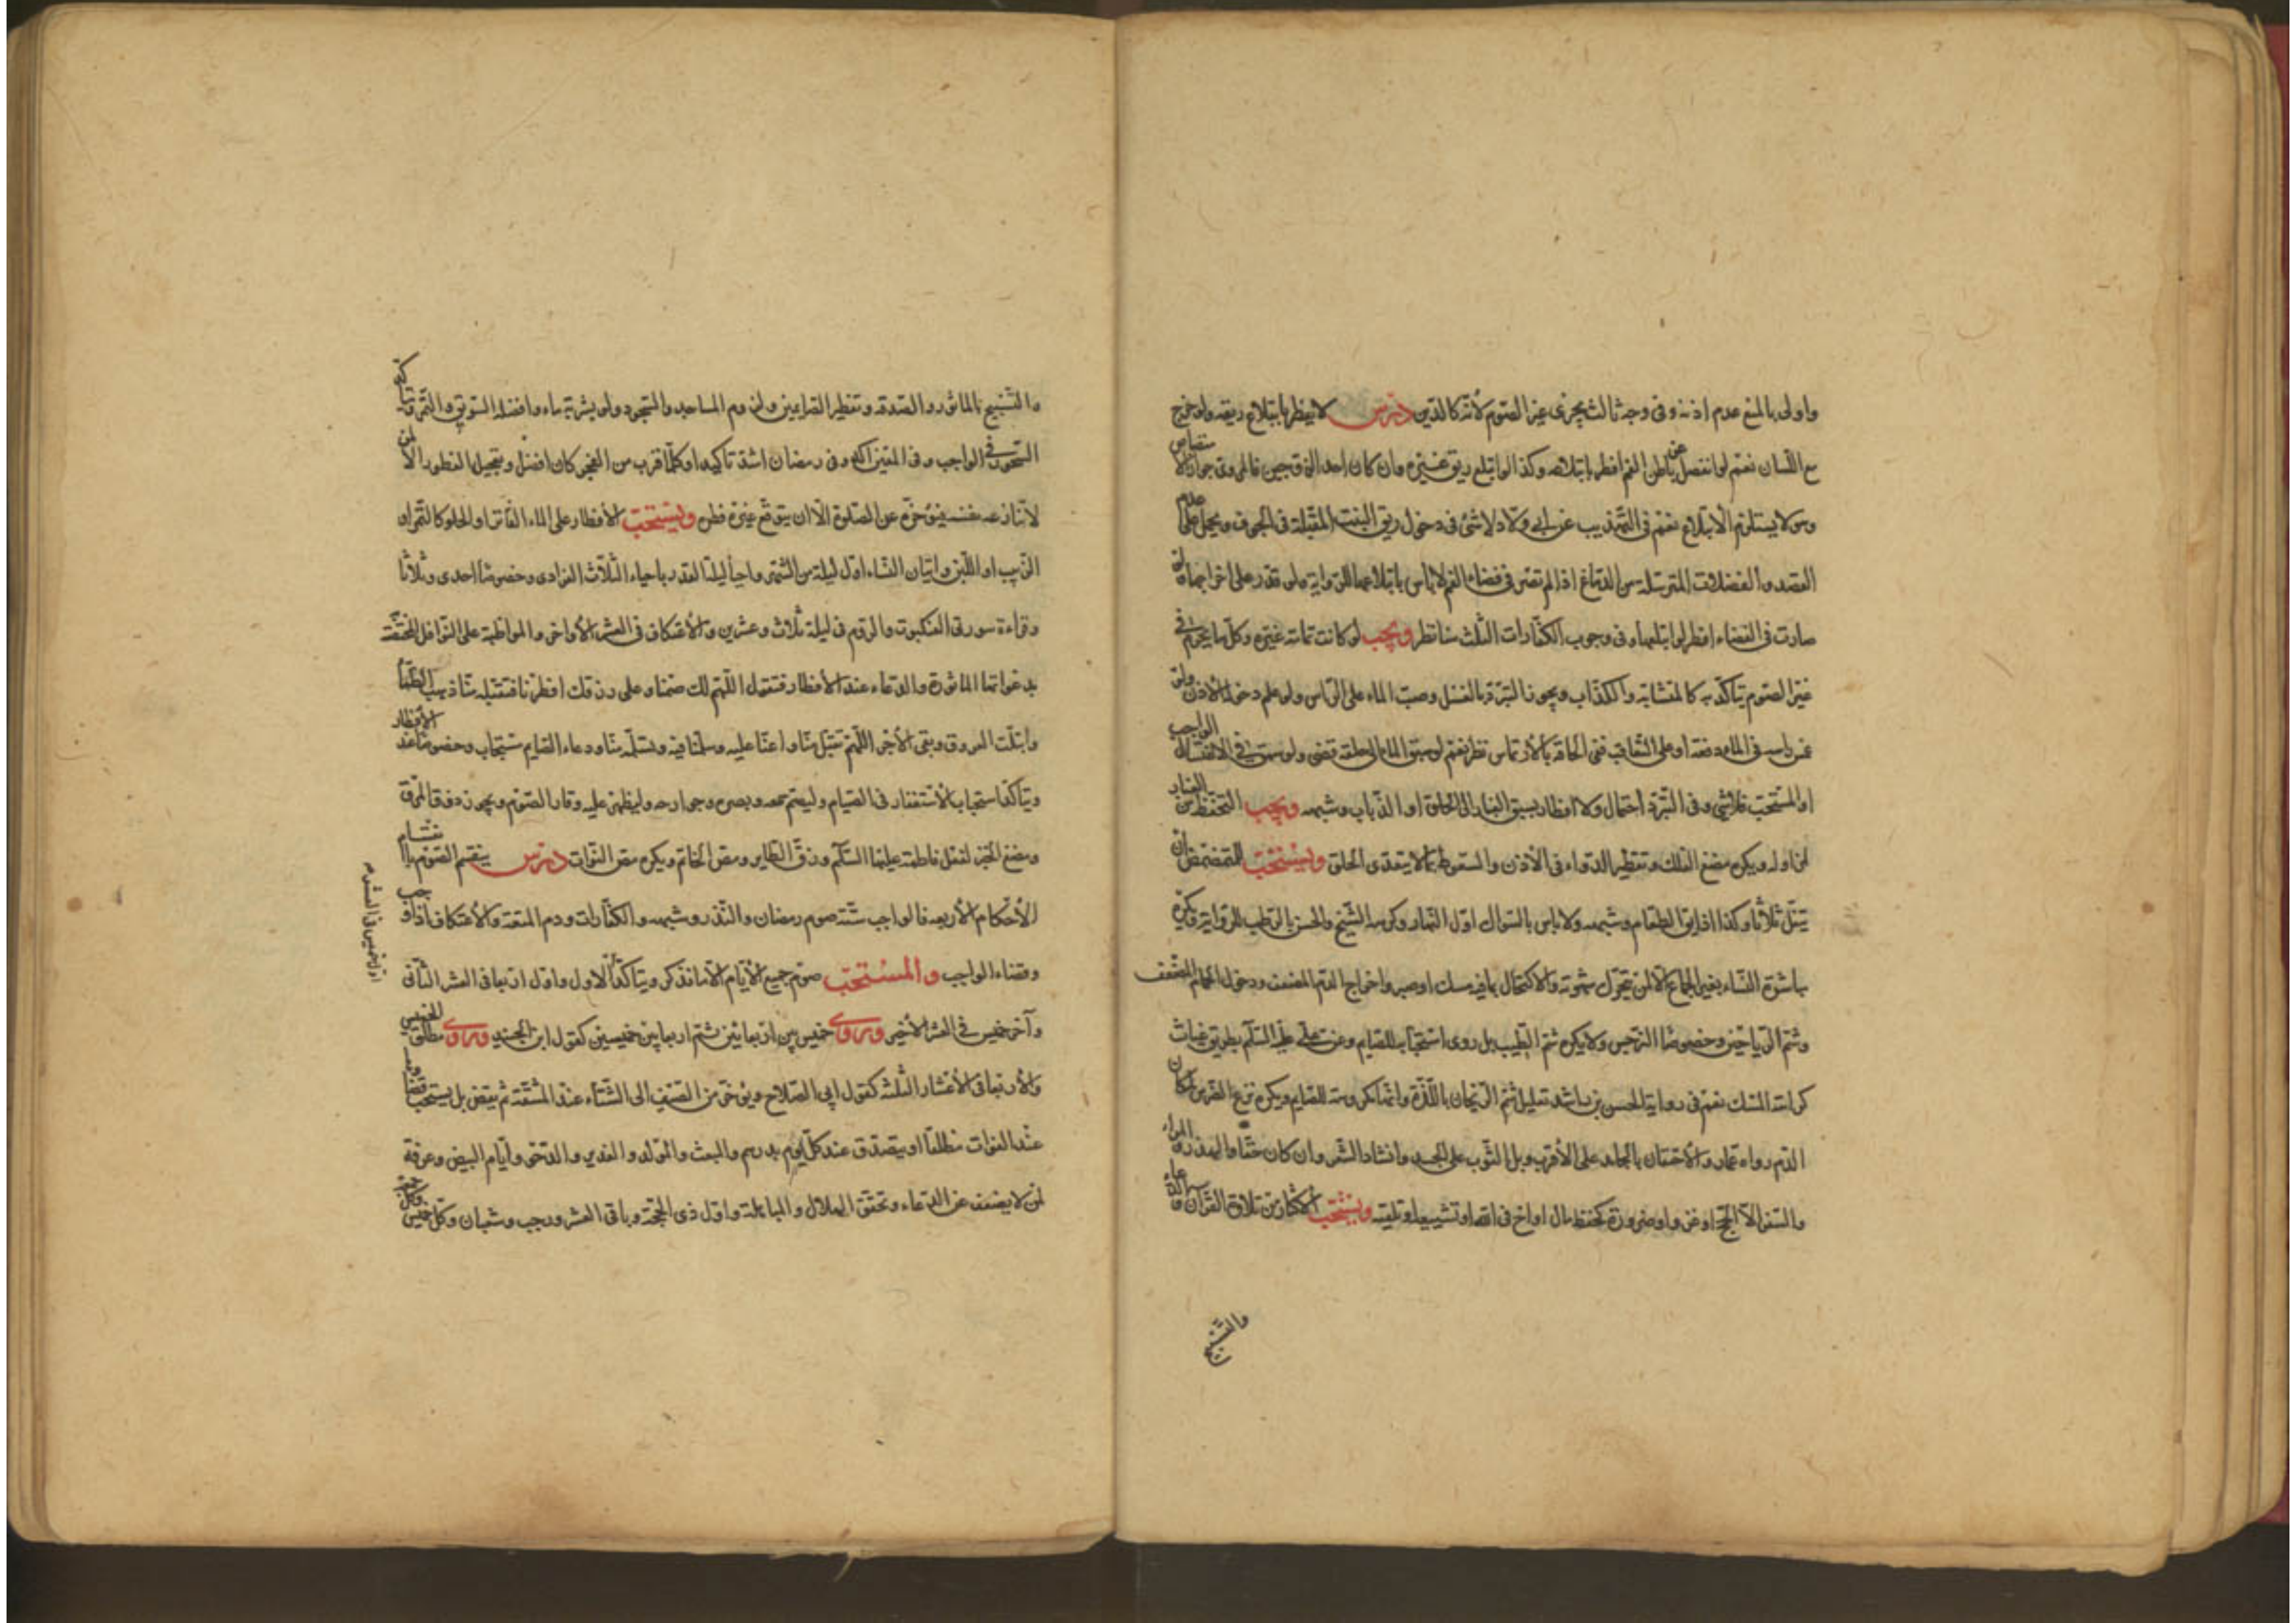 واولى بالمنع عدم اذنه وفى وجه ثالث يجزى عن الصوم لأنّه كالدّين درس لا يفطر بابتلاع ريقه ولو خرج
مع اللّسان نعم لو انفصل عن باطن الفم افطر بابتلاعه وكذا لو ابتلع ريق غيره وان كان احد الزوجين فالمروى جواز الامتصاص
وهو لا يستلزم الابتلاع نعم فى التهذيب عن ابى ولاد لا شئ فى دخول ريق البنت المقبّلة فى الجوف ويحمل على عدم
القصد والفضلات المترسّلة من الدماغ اذا لم تصر فى فضاء الفم لا بأس بابتلاعها للرواية ولو قدر على اخراجها وان
صارت فى الفضاء افطر لو ابتلعها وفى وجوب الكفّارات الثلث هنا نظر ويجب لو كانت نخامة غيره وكل ما يحرم فى
غير الصوم يتأكّد به كالمشاتمة والكذاب ويجوز التبرّد بالغسل وصبّ الماء على الرأس ولو علم دخوله الأذن ولو
غمس رأسه فى الماء دفعة او على التعاقب ففى الحاقه بالارتماس نظر نعم لو سبق الماء الى حلقه قضى ولو سبق فى الاغتسال الواجب
او المستحب فلا شئ وفى التبرّد احتمال ولا افطار بسبق الغبار الى الحلق او الذباب وشبهه ويجب التحفظ من الغبار
لمن اوله ويكره مضغ العلك وتقطير الدواء فى الأذن والسعوط بما لا يتعدى الحلق ويستحب للمتمضمض ان
يتفل ثلاثا وكذا اذا ذاق الطعام وشبهه ولا باس بالسواك اول النهار وكرهه الشيخ والحسن بالرطب للرواية ويكره
مباشرة النساء بغير الجماع الّا لمن تحرّك شهوته والاكتحال بما فيه مسك او صبر واخراج الدم المضعف ودخول الحمام المضعف
وشمّ الرياحين وخصوصا النرجس ولا يكره شمّ الطيب بل روى استحبابه للصايم وعن على عليه السلم بطريق غياث
كراهة المسك نعم فى رواية الحسن بن راشد تعليل شمّ الريحان باللّذة وانّها مكروهة للصايم ويكره نزع الضرس لمكان
الدم رواه عمار والاحتقان بالجامد على الأقرب وبلّ الثوب على الجسد وانشاد الشعر وان كان حقّا والهذر والمراء
والسفر الّا لحج او غزو او ضرورة كحفظ مال او اخ فى الله او تشييعه او تلقيه ويستحب الاكثار من تلاوة القرآن والدعاء
والتسبيح
والتسبيح بالماثور والصدقة وتفطير الصايمين ولزوم المساجد والسحور ولو بشربة ماء وافضله السويق والتمر وتاكّد
السحور فى الواجب وفى المعين آكد وفى رمضان اشدّ تاكيدا وكلّما قرب من الفجر كان افضل وتعجيل الفطور الّا لمن
لا تنازعه نفسه فيؤخره عن الصلوة الّا ان يتوقع غيره فطره ويستحب الأفطار على الماء الفاتر او الحلو كالتمر او
الزبيب او اللبن واتيان النساء اول ليلة من الشهر واحيا ليلة القدر باحياء الثلاث الفرادى وخصوصا احدى وثلاثا
وقراءة سورتى العنكبوت والروم فى ليلة ثلاث وعشرين والاعتكاف فى العشر الأواخر والمواظبة على النوافل المختصّة
بدعواتها الماثورة والدعاء عند الأفطار فتقول اللّهم لك صمنا وعلى رزقك افطرنا فتقبّله منّا ذهب الظمأ
وابتلّت العروق وبقى الأجر اللّهم تقبل منّا واعنّا عليه وسلّمنا فيه وتسلّمه منّا ودعاء الصايم مستجاب وخصوصا عند الأفطار
ويتاكد استحباب الاستغفار فى الصيام وليصم سمعه وبصره وجوارحه وليظهر عليه وقار الصوم ويجوز ذوق المرق
ومضغ الخبز لفعل فاطمة عليها السلم وزقّ الطاير ومصّ الخاتم ويكره مصّ النواة درس ينقسم الصوم بانقسام
الأحكام الأربعة فالواجب ستة صوم رمضان والنذر وشبهه والكفّارات ودم المتعة والاعتكاف اذا وجب
وقضاء الواجب والمستحب صوم جميع الأيام الّا ما نذكر ويتاكّد الاول واول اربعا فى العشر الثانى
اول خميس فى العشر
وآخر خميس فى العشر الأخير وروى خميس بين اربعائين ثم اربعا بين خميسين كقول ابن الجنيد وروى مطلق الخميس
والأربعا فى الأعشار الثلثة كقول ابى الصلاح ويؤخر من الصيف الى الشتاء عند المشقة ثم يقضى بل يستحب قضاؤها
عند الفوات مطلقا او يتصدق عند كلّ يوم بدرهم والبعث والمولد والغدير والدحو وأيّام البيض وعرفة
لمن لا يضعف عن الدعاء وتحقق الهلال والمباهلة واول ذى الحجة وباقى العشر ورجب وشعبان وكل خميس وكل جمعة